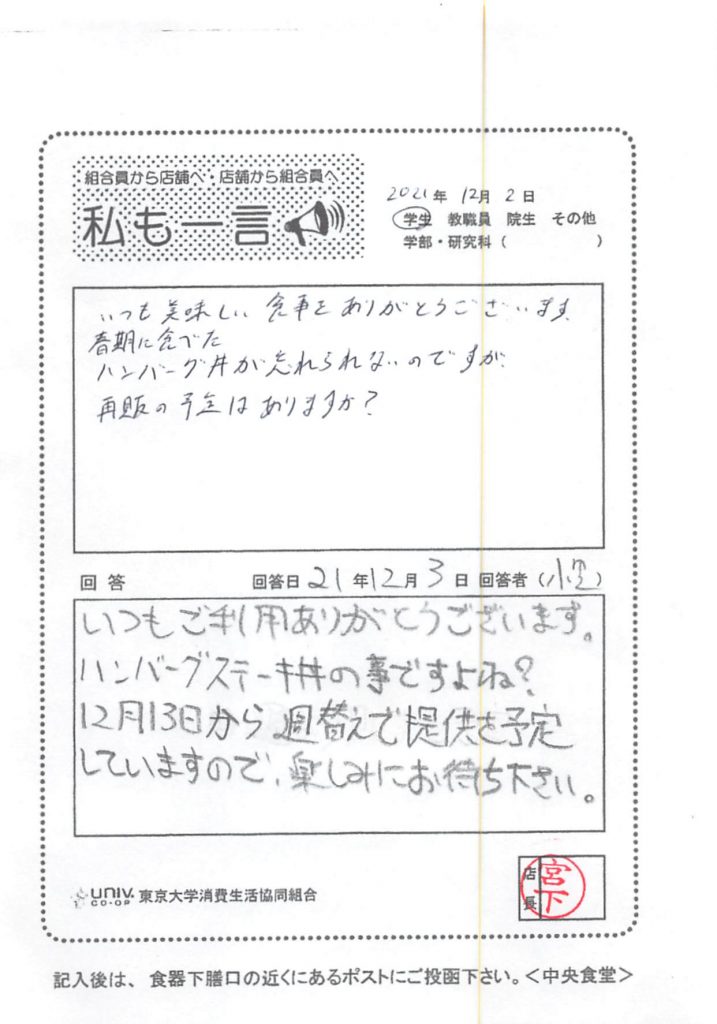 組合員から店舗へ・店舗から組合員へ
私も一言
2021年 12月 2日
学生 教職員 院生 その他
学部・研究科( )
いつも美味しい食事をありがとうございます。
春期に食べた
ハンバーグ丼が忘れられないのですが、
再販の予定はありますか?
回答 回答日 21年12月3日 回答者( )
いつもご利用ありがとうございます。
ハンバーグステーキ丼の事ですよね?
12月13日から週替えで提供を予定
していますので、楽しみにお待ち下さい。
店長
宮下
UNIV.
CO-OP
東京大学消費生活協同組合
記入後は、食器下膳口の近くにあるポストにご投函下さい。<中央食堂>